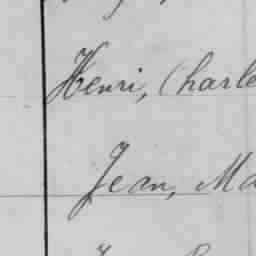 Henri, Charle
Jean, Ma